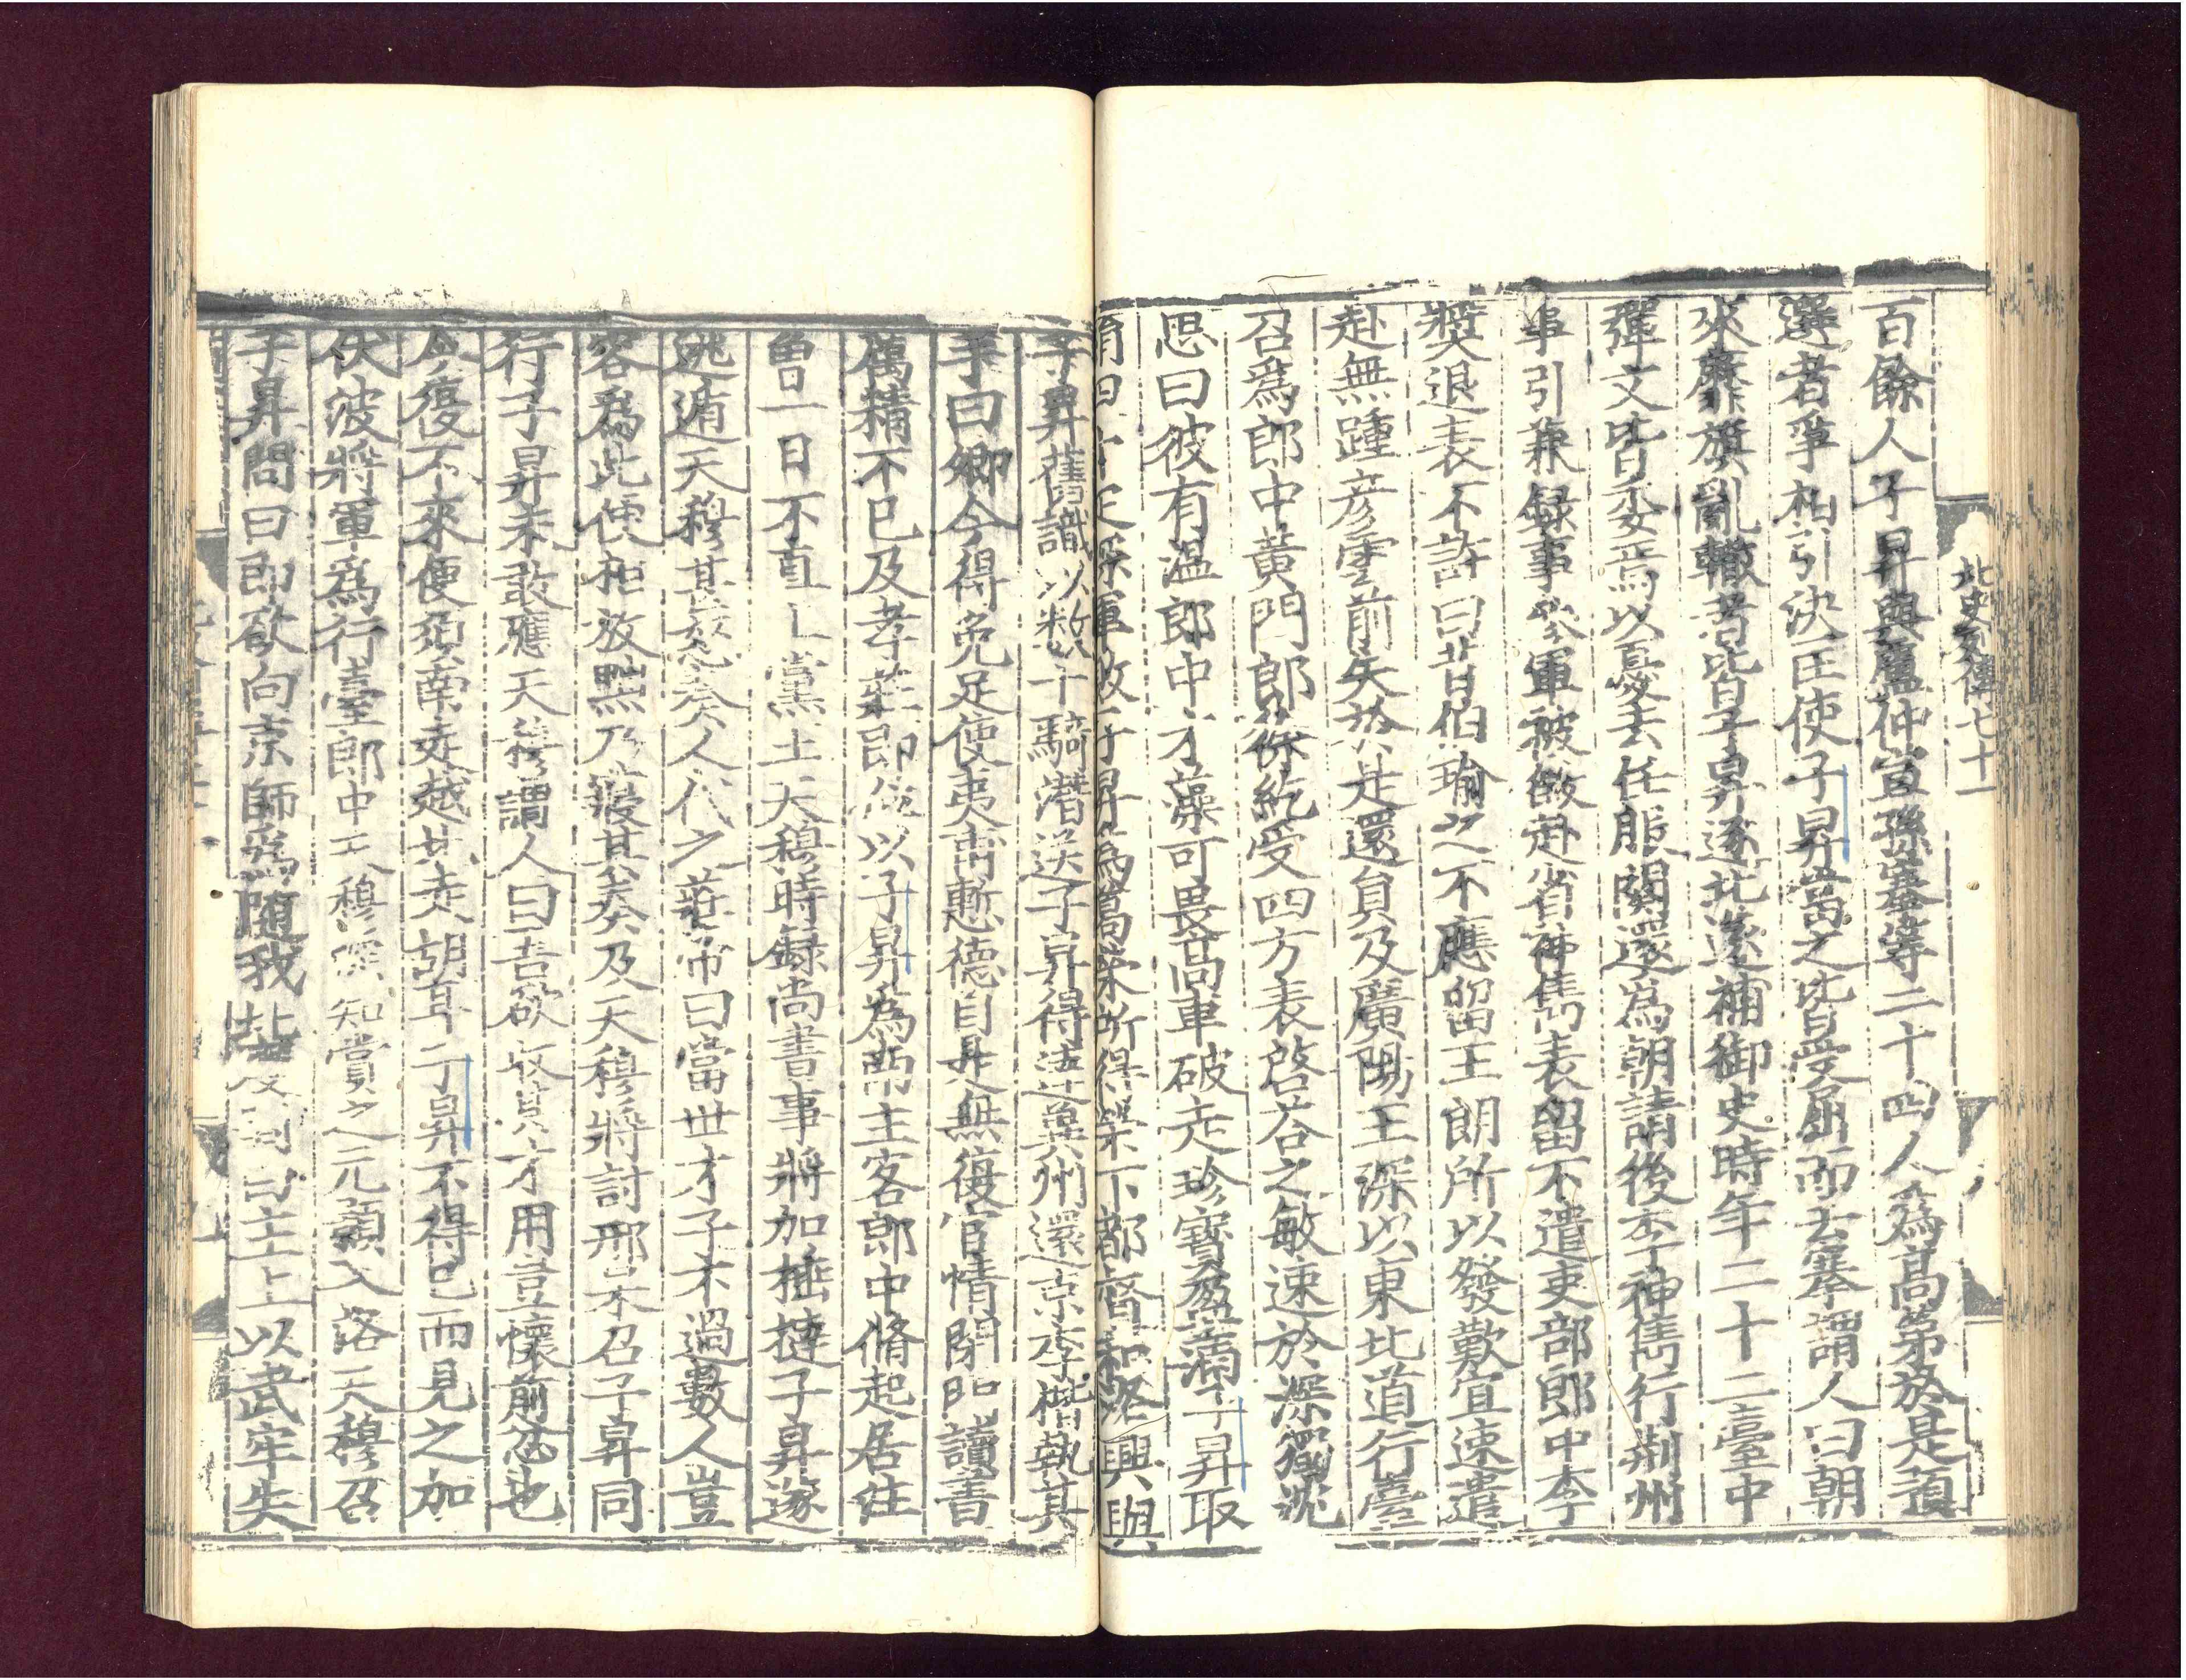 北史列傳七十一
百餘人子昇與盧仲宣孫搴等二十四人爲高第於是預
選者爭相引決匡使子昇當之皆受屈而去搴謂人曰朝
來靡旗亂轍者皆子昇逐北遂補御史時年二十二臺中
彈文皆委焉以憂去任服闋還爲朝請後李神儁行荆州
事引兼録事參軍被徵赴省神儁表留不遣吏部郎中李
獎退表不許曰昔伯瑜之不應留王朗所以發歎宜速遣
赴無踵彦雲前失於是還貟及廣陽王深以東北道行臺
召爲郎中黄門郎徐紇受四方表啓荅之敏速於深獨沈
思曰彼有温郎中才藻可畏高車破走珍寳盈滿子昇取
子昇舊識以數十騎潜送子昇得達冀州還京李楷執其
手曰卿今得免足使夷甫慙德自是無復官情閉門讀書
厲精不已及孝莊即位以子昇爲南主客郎中脩起居注
曽一日不直上黨王天穆時録尚書事將加捶撻子昇遂
逃遁天穆甚怒奏人代之莊帝曰當世才子不過數人豈
容爲此便相放黜乃寢其奏及天穆將討邢杲召子昇同
行子昇未敢應天穆謂人曰吾欲收其才用豈懷前忿也
今復不來便須南走越北走胡耳子昇不得已而見之加
伏波將軍爲行臺郎中天穆深知賞之元顥入洛天穆召
子昇問曰即欲向京師爲隨我北 對曰主上以武牢失